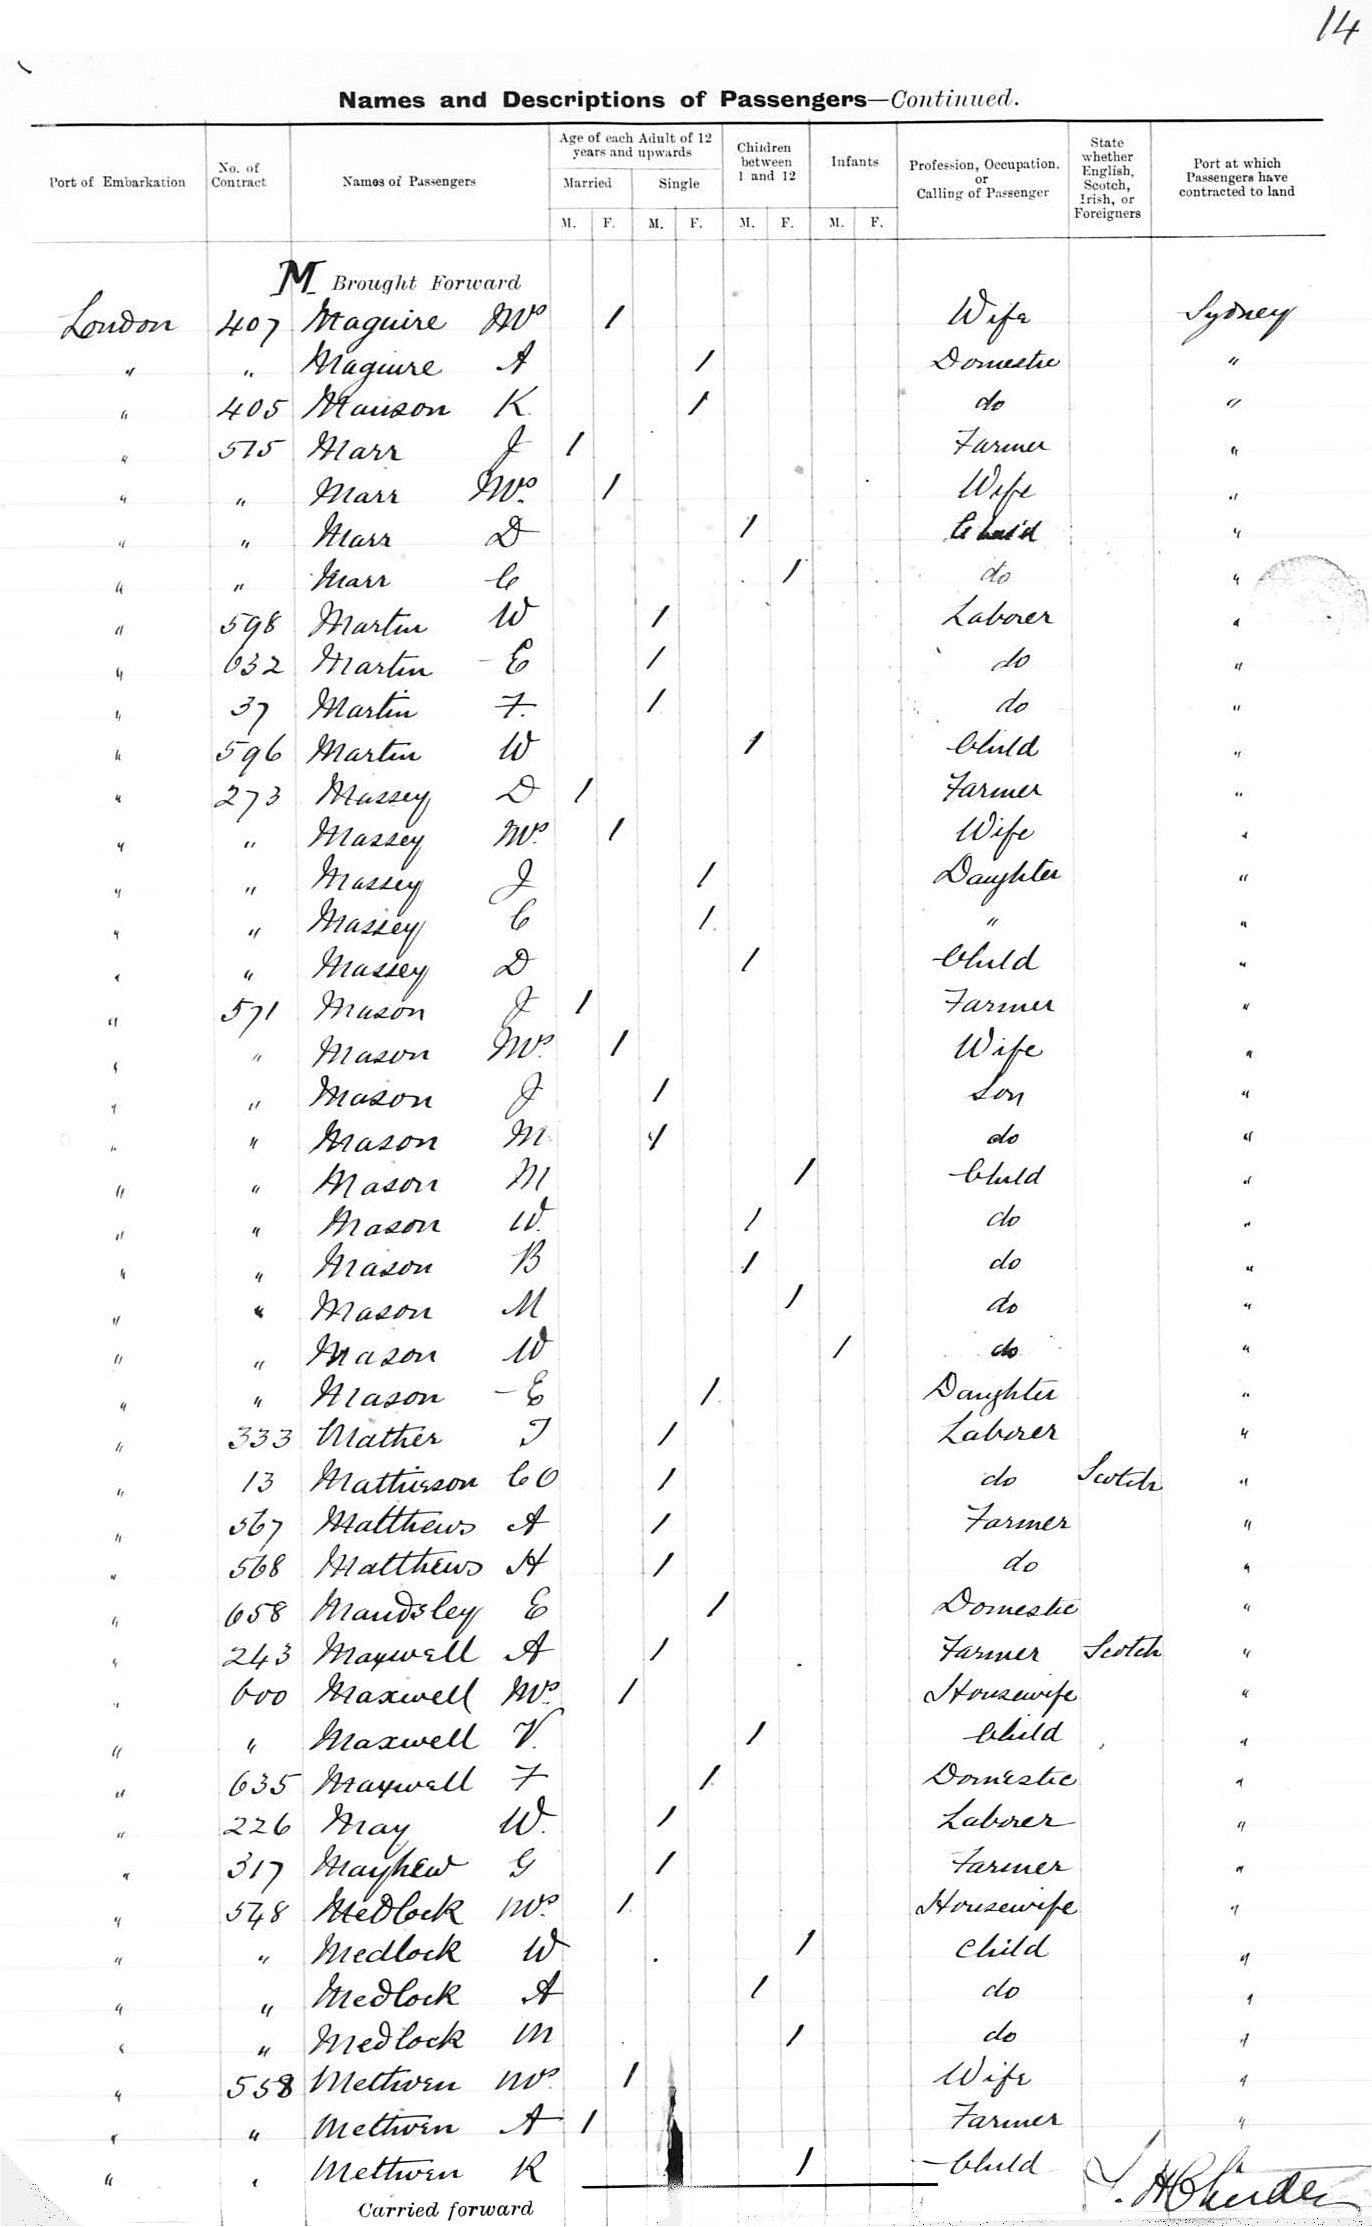 14
Names and Descriptions of Passengers—Continued.
Port of Embarkation | No. of Contract | Names of Passengers | Age of each Adult of 12 years and upwards | Children between 1 and 12 | Infants | Profession, Occupation, or Calling of Passenger | State whether English, Scotch, Irish, or Foreigners | Port at which Passengers have contracted to land
Married | Single
M. | F. | M. | F. | M. | F. | M. | F.
M Brought Forward
London 407 Maguire Mrs 1 Wife Sydney
" " Maguire A 1 Domestic "
" 405 Manson K. 1 do "
" 515 Marr J 1 Farmer "
" " Marr Mrs. 1 Wife "
" " Marr D 1 Child "
" " Marr C 1 do "
" 598 Martin W 1 Laborer "
" 632 Martin E 1 do "
" 37 Martin F. 1 do "
" 596 Martin W 1 Child "
" 273 Massey D 1 Farmer "
" " Massey Mrs. 1 Wife "
" " Massey J 1 Daughter "
" " Massey C 1 " "
" " Massey D 1 Child "
" 571 Mason J 1 Farmer "
" " Mason Mrs. 1 Wife "
" " Mason J 1 Son "
" " Mason M. 1 do "
" " Mason M 1 Child "
" " Mason W. 1 do "
" " Mason B 1 do "
" " Mason M 1 do "
" " Mason W 1 do "
" " Mason E 1 Daughter "
" 333 Mather T 1 Laborer "
" 13 Mathieson C O 1 do Scotch "
" 567 Matthews A 1 Farmer "
" 568 Matthews H 1 do "
" 658 Maudsley E 1 Domestic "
" 243 Maxwell A 1 Farmer Scotch "
" 600 Maxwell Mrs. 1 Housewife "
" " Maxwell V. 1 Child "
" 635 Maxwell F 1 Domestic "
" 226 May W. 1 Laborer "
" 317 Mayhew G 1 Farmer "
" 548 Medlock Mrs. 1 Housewife "
" " Medlock W 1 Child "
" " Medlock A 1 do "
" " Medlock M 1 do "
" 558 Methven Mrs. 1 Wife "
" " Methven A 1 Farmer "
" " Methven K 1 Child "
Carried forward